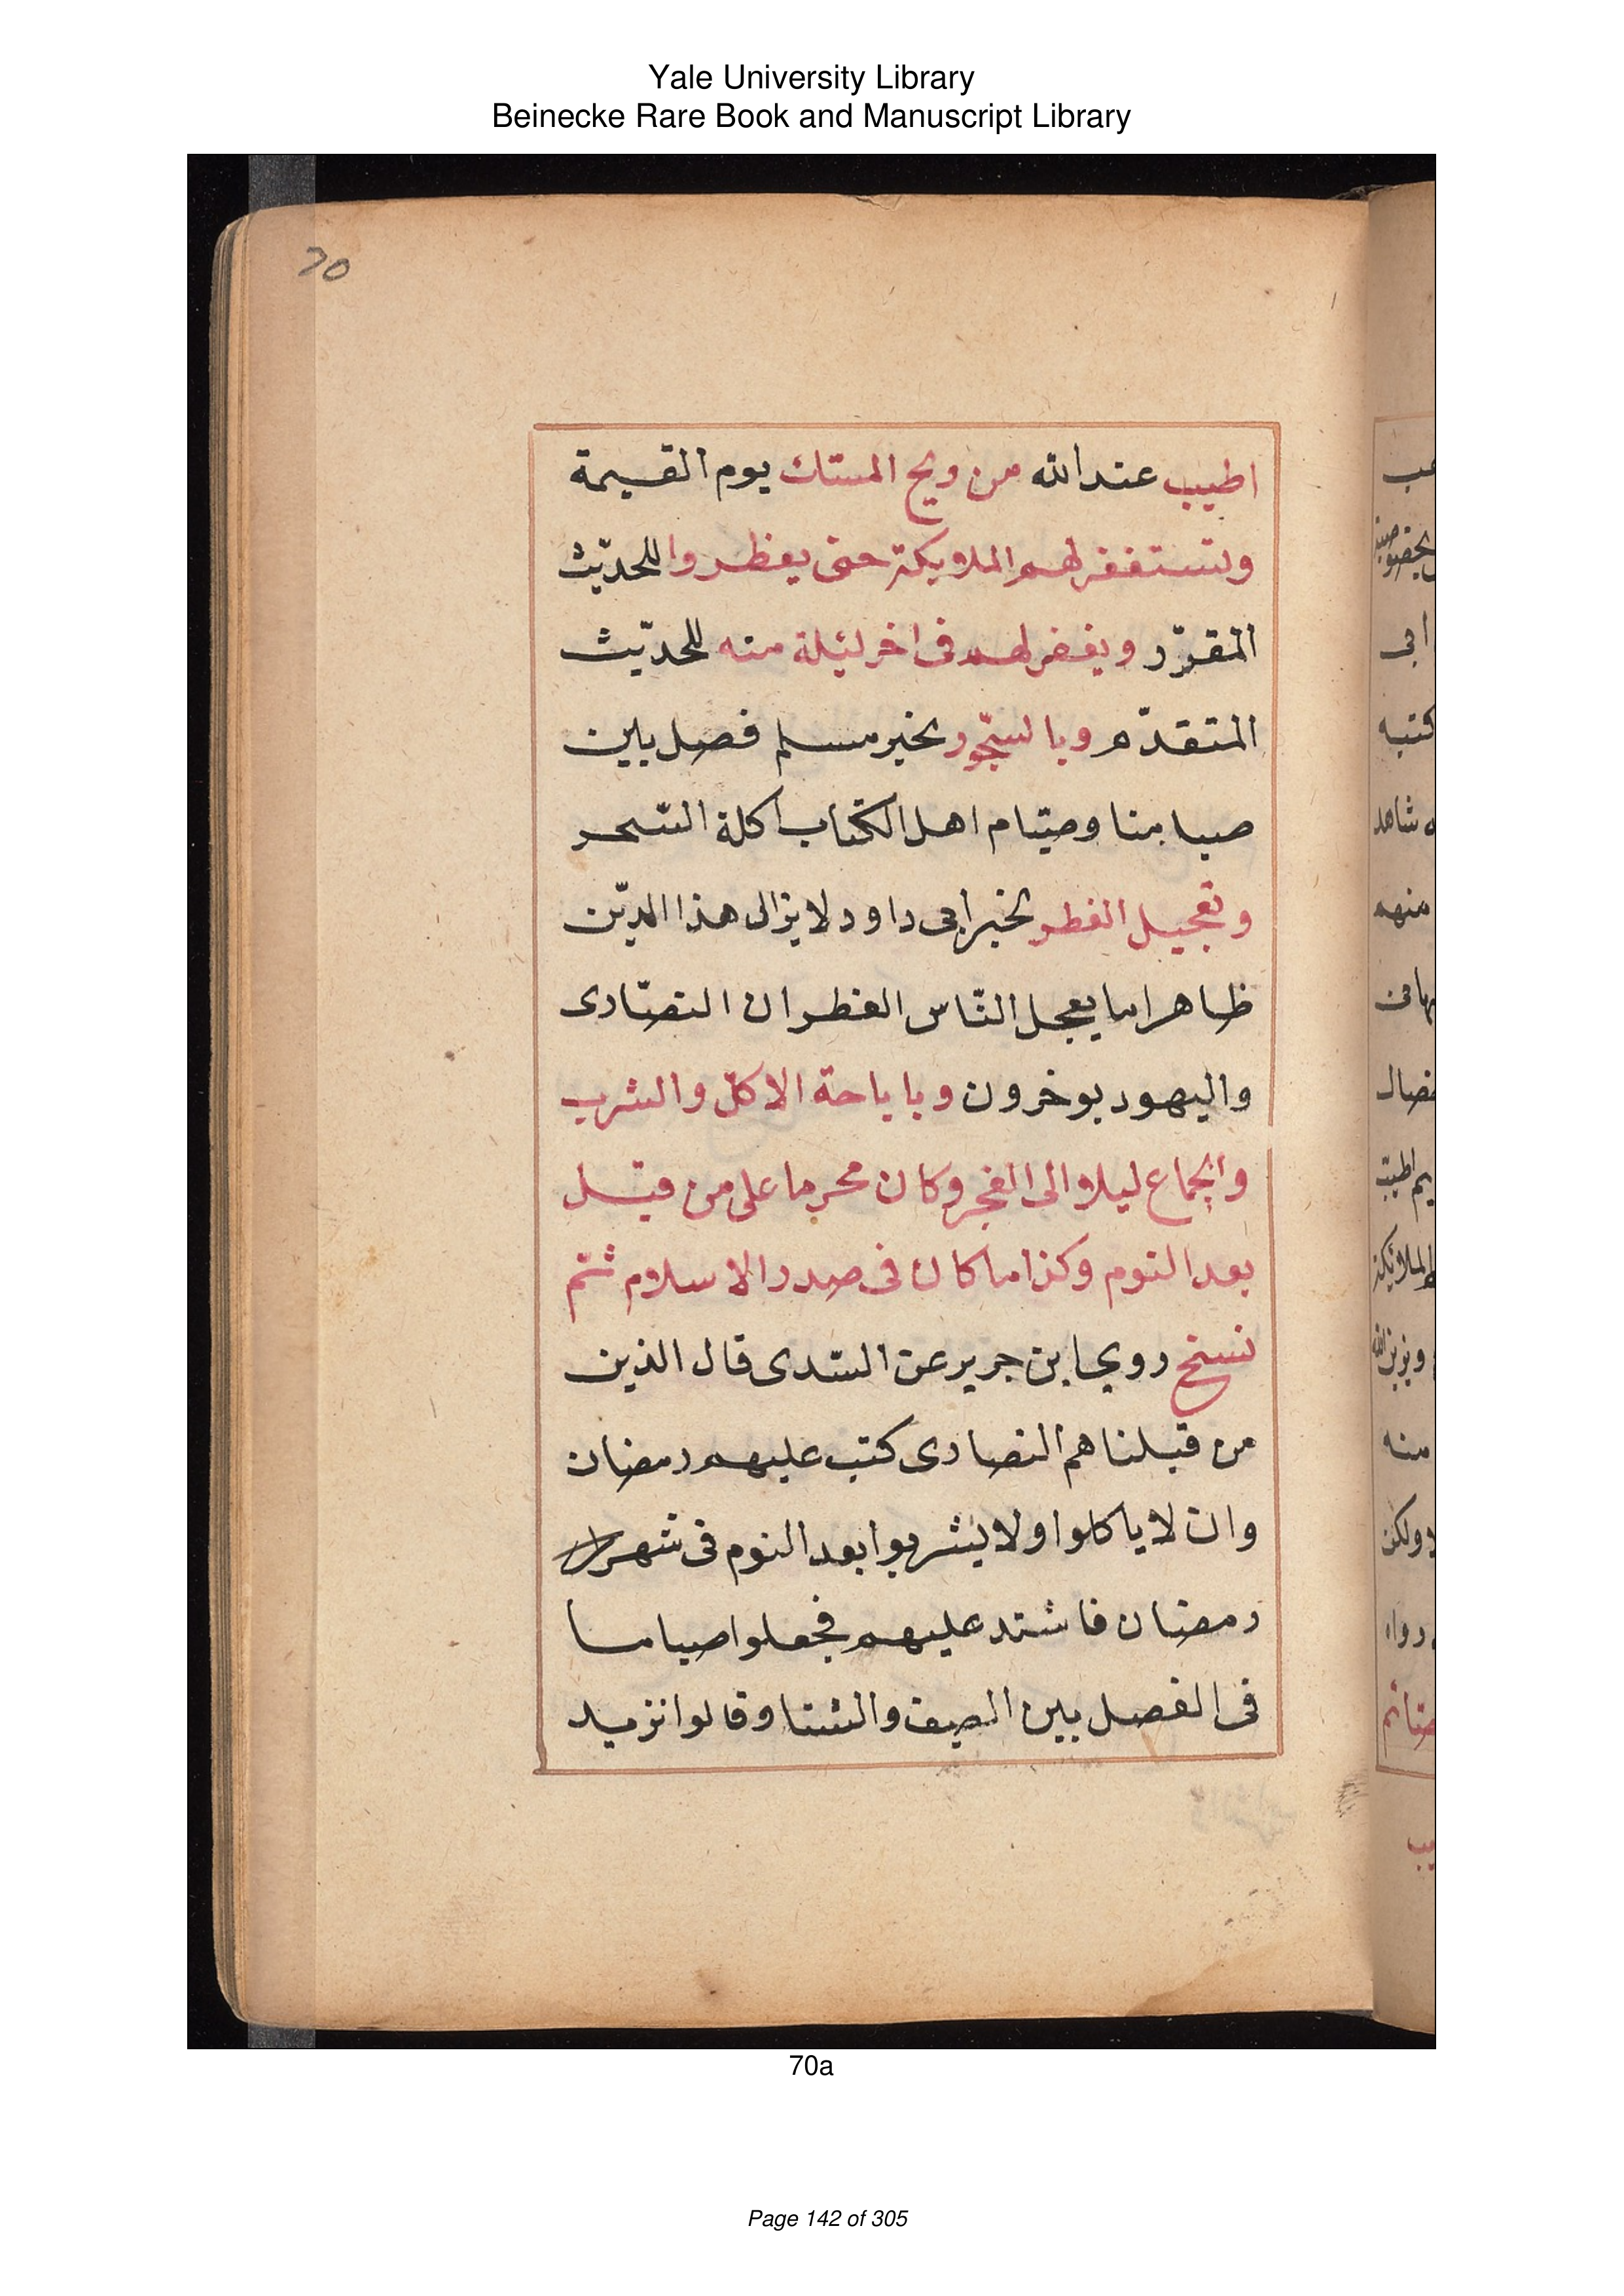 Yale University Library
Beinecke Rare Book and Manuscript Library
70
اطيب عند الله من ريح المسك يوم القيمة
وتستغفر لهم الملايكة حتى يفطروا للحديث
المقرّر ويغفر لهم فى اخر ليلة منه للحديث
المتقدّم وبالسّحور بخبر مسلم فصل بين
صيامنا وصيام اهل الكتاب اكلة السّحر
وتعجيل الفطر بخبر ابى داود لا يزال هذا الدّين
ظاهرا ما يعجل النّاس الفطر ان النصّارى
واليهود يوخرون وباباحة الاكل والشرب
والجماع ليلا الى الفجر وكان محرما على من قبل
بعد النوم وكذا ما كان فى صدر الاسلام ثمّ
نسخ روى ابن جرير عن السّدى قال الذين
من قبلنا هم النصارى كتب عليهم رمضان
وان لا ياكلوا ولا يشربوا بعد النوم فى شهر
رمضان فاشتد عليهم فجعلوا صياما
فى الفصل بين الصيف والشتا وقالوا نزيد
70a
Page 142 of 305